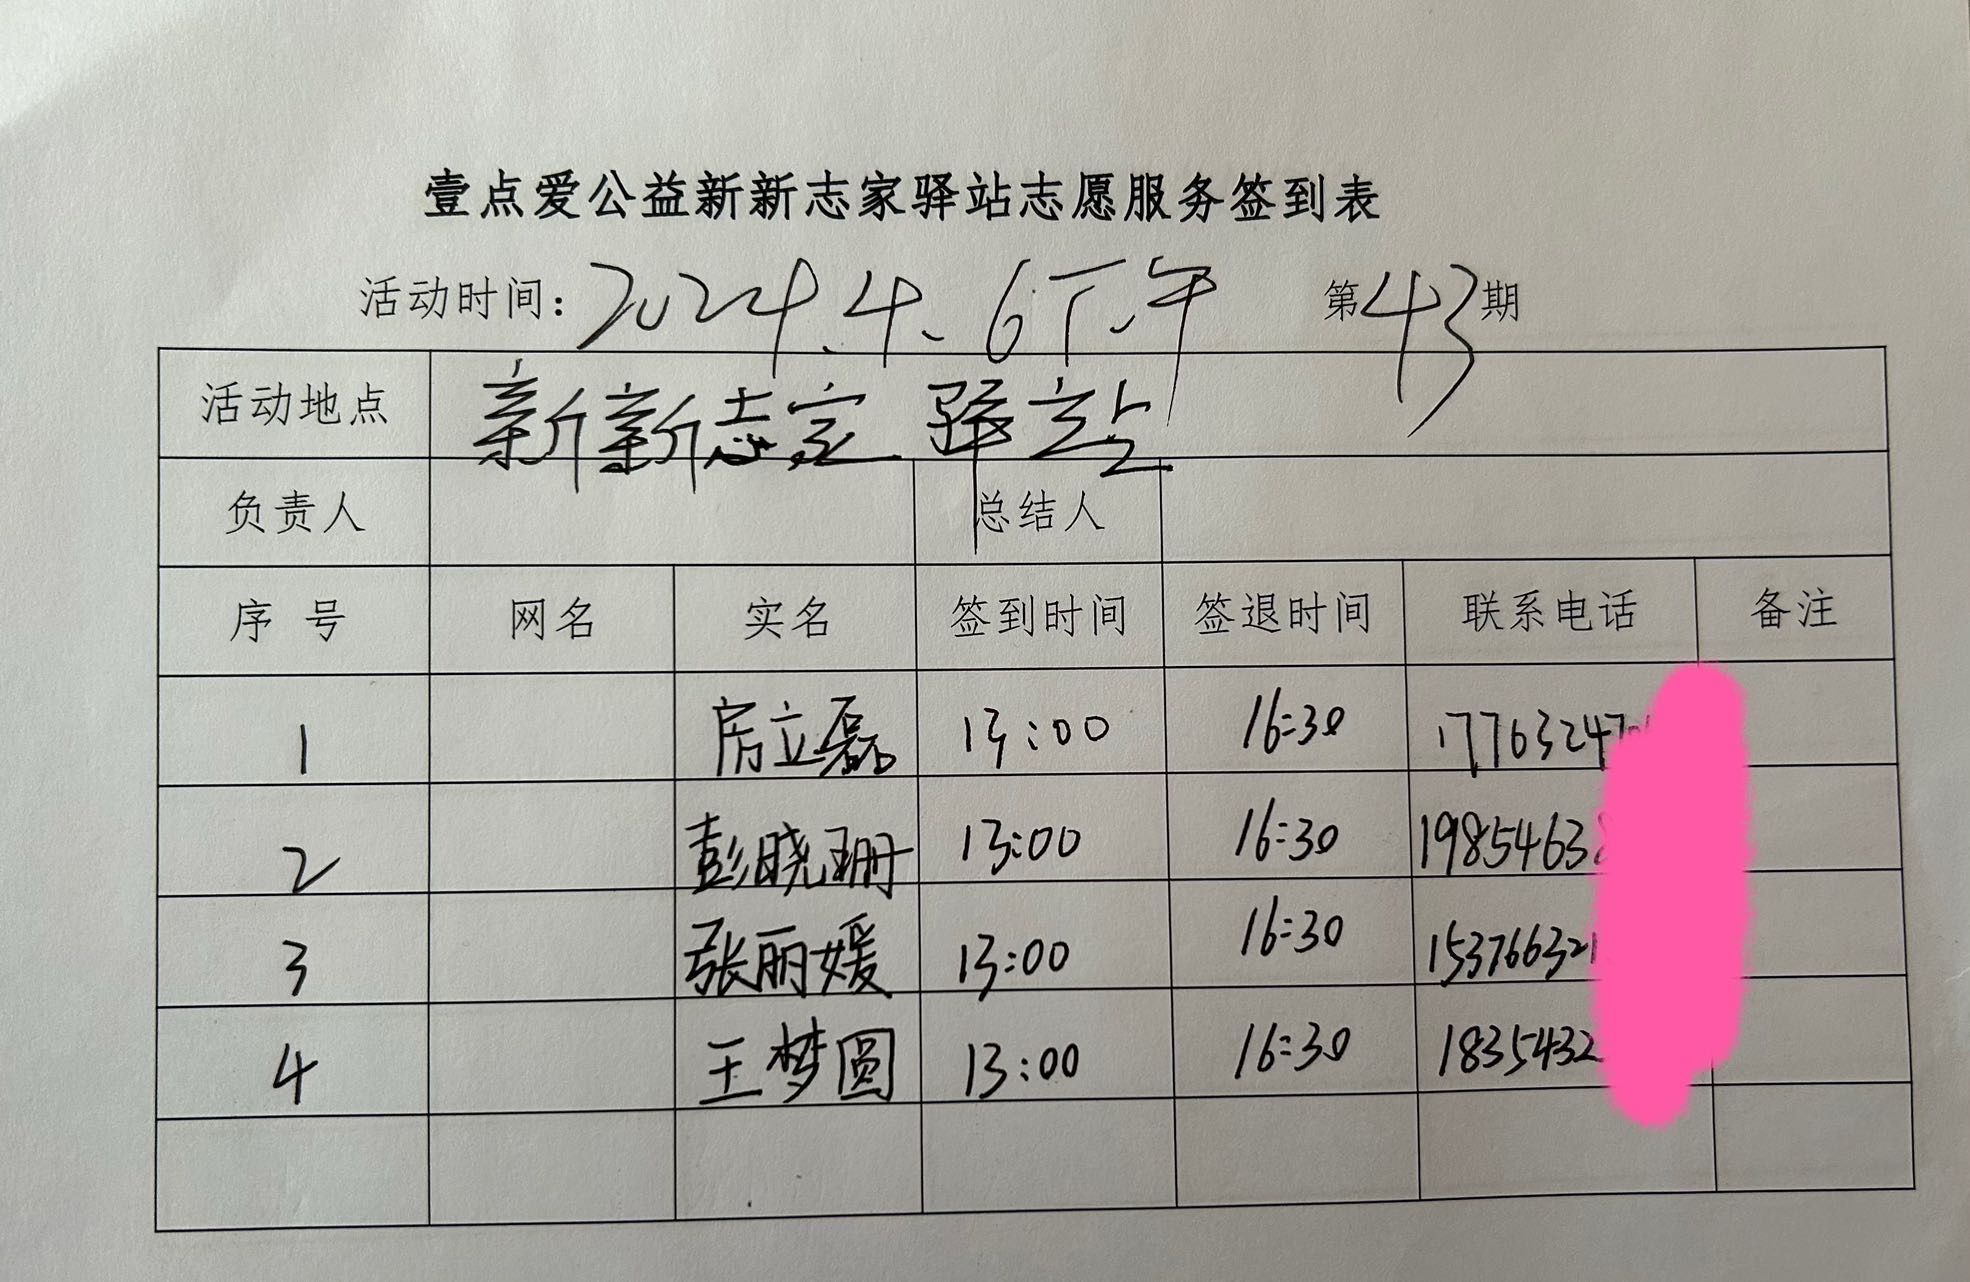 壹点爱公益新新志家驿站志愿服务签到表
活动时间: 2024.4.6下午 第43期
活动地点 新新志家驿站
负责人 总结人
序号 网名 实名 签到时间 签退时间 联系电话 备注
1 房立磊 13:00 16:30 177632470
2 彭晓珊 13:00 16:30 19854638
3 张丽媛 13:00 16:30 153766321
4 王梦圆 13:00 16:30 18354322